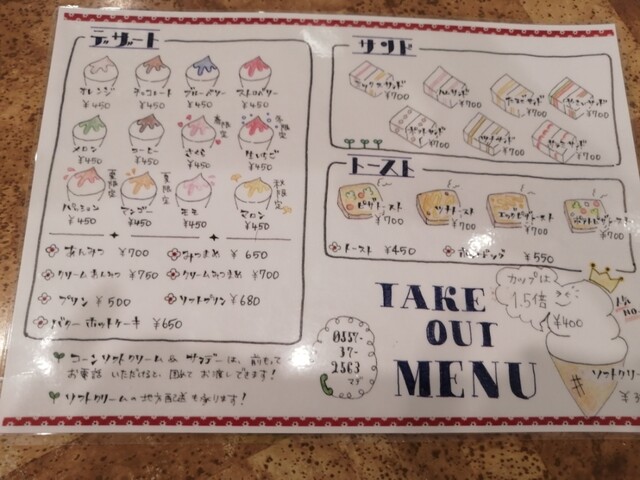 デザート
オレンジ
¥450
チョコレート
¥450
ブルーベリー
¥450
ストロベリー
¥450
メロン
¥450
コーヒー
¥450
さくら
¥450
春限定
生いちご
¥450
冬限定
パッション
¥450
夏限定
マンゴー
¥450
夏限定
モモ
¥450
マロン
¥450
秋限定
あんみつ ¥700
みつまめ ¥650
クリームあんみつ ¥750
クリームみつまめ ¥700
プリン ¥500
ソフトプリン ¥680
バターホットケーキ ¥650
コーンソフトクリーム & サンデーは、前もって
お電話いただけると、固めてお渡しできます!
ソフトクリームの地方配送も承ります!
サンド
ミックスサンド
¥700
ハムサンド
¥700
たまごサンド
¥700
やさいサンド
¥700
ポテトサンド
¥700
ツナサンド
¥700
¥700
トースト
ピザトースト
¥700
ツナトースト
¥700
エッグピザトースト
¥700
ポテトピザトースト
¥700
トースト ¥450
ホットドッグ ¥550
カップは
1.5倍
¥400
TAKE
OUT
MENU
0557-
37-
2563
マデ
ソフトクリーム